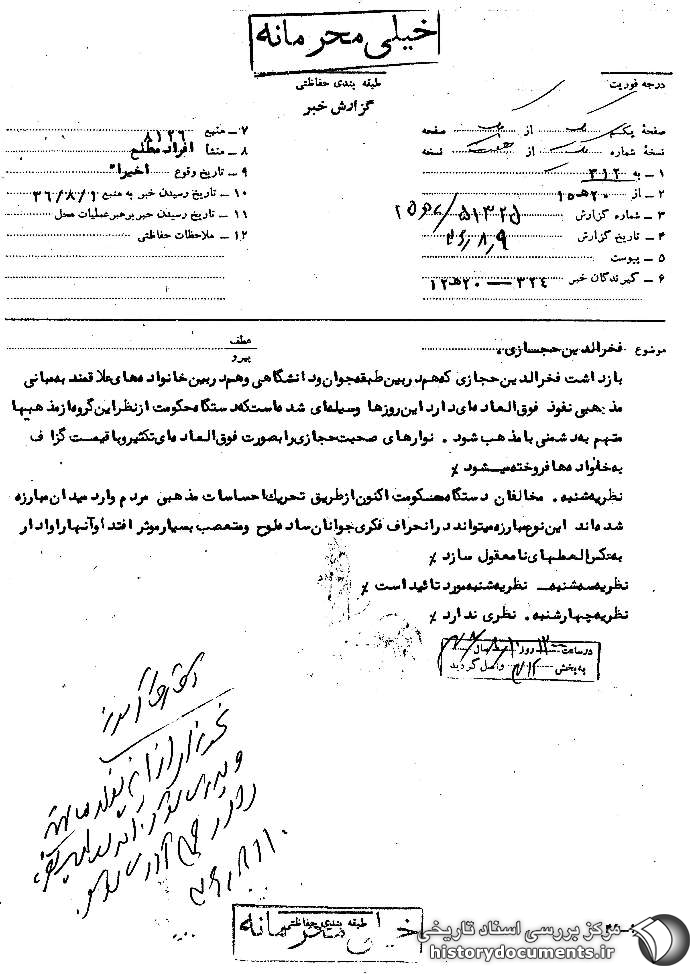 خیلی محرمانه
طبقه بندی حفاظتی
گزارش خبر
درجه فوریت
صفحهٔ یک از یک صفحه
نسخهٔ شماره یک از نسخه
۱ ــ به ۳۱۲
۲ ــ از ۲۰ هـ ۱۵
۳ ــ شماره گزارش
۴ ــ تاریخ گزارش ۳۶٫۸٫۹
۵ ــ پیوست
۶ ــ گیرندگان خبر ۳۲۴ ــ ۲۰ هـ ۱۲
۷ ــ منبع ۸۱۲۶
۸ ــ منشأ افراد مطلع
۹ ــ تاریخ وقوع اخیرا"
۱۰ ــ تاریخ رسیدن خبر به منبع ۳۶/۸/۱
۱۱ ــ تاریخ رسیدن خبر برهبر عملیات محل
۱۲ ــ ملاحظات حفاظتی
موضوع فخرالدین حجازی.
عطف
پیرو
بازداشت فخرالدین حجازی که هم در بین طبقه جوان و دانشگاهی و هم در بین خانواده های علاقمند به مبانی
مذهبی نفوذ فوق العاده ای دارد این روزها وسیله ای شده است که دستگاه حکومت از نظر این گروه از مذهبیها
متهم به دشمنی با مذهب شود . نوارهای صحبت حجازی را بصورت فوق العاده ای تکثیر و با قیمت گزاف
به خانواده ها فروخته میشود ٪
نظریه شنبه . مخالفان دستگاه حکومت اکنون از طریق تحریک احساسات مذهبی مردم وارد میدان مبارزه
شده اند این نوع مبارزه میتواند در انحراف فکری جوانان ساده لوح و متعصب بسیار موثر افتد و آنها را وادار
به عکس العملهای نامعقول سازد ٪
نظریه سه شنبه ــ نظریه شنبه مورد تائید است ٪
نظریه چهارشنبه . نظری ندارد ٪
در ساعت ۱۳ روز
به بخش ۳۱۲ واصل گردید
طبقه بندی حفاظتی
خیلی محرمانه
مرکز بررسی اسناد تاریخی
historydocuments.ir